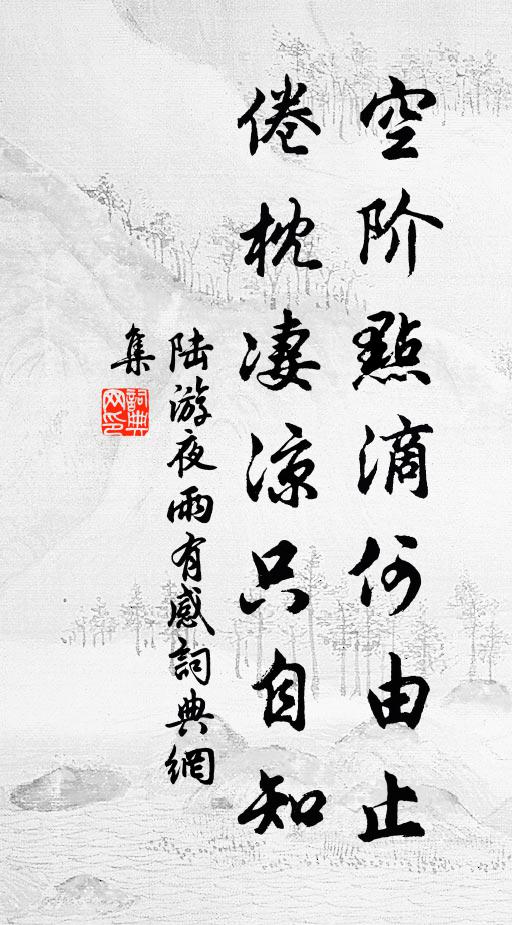 空阶點滴何由止
倦枕凄凉只自知
陆游夜雨有感詞典網
集
詞典网印